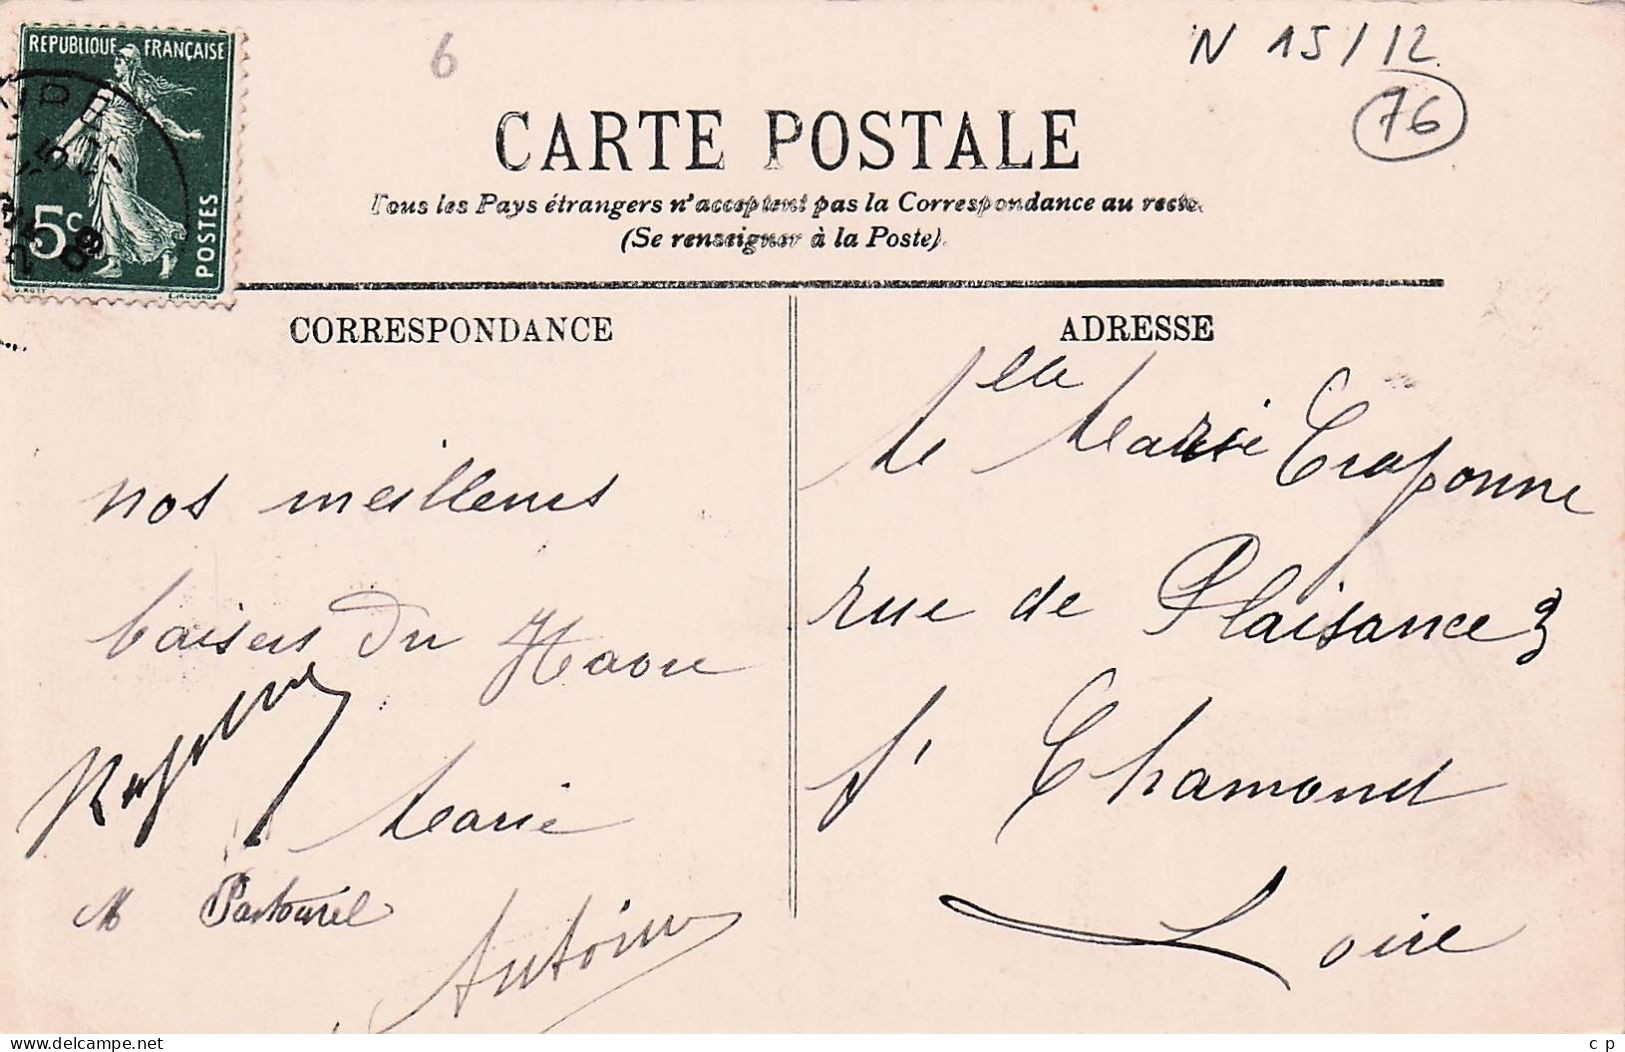 N 15/12
76
6
REPUBLIQUE FRANÇAISE
5c
POSTES
CARTE POSTALE
Tous les Pays étrangers n'acceptent pas la Correspondance au recto.
(Se renseigner à la Poste).
CORRESPONDANCE
nos meilleurs
baisers du Havre
Marie
M Pastourel
Antoine
ADRESSE
Melle Marie Craponne
rue de Plaisance 3
St Chamond
Loire
delcampe.net
c p